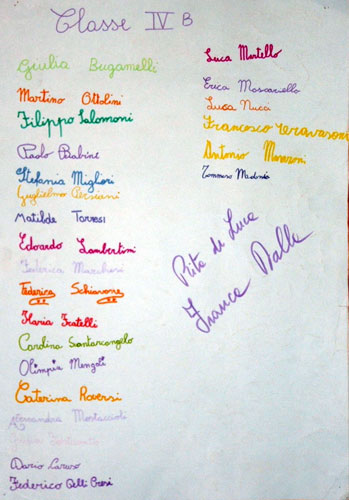 Classe IV B
Giulia Bugamelli
Martino Ottolini
Filippo Salomoni
Paolo Babine
Stefania Migliori
Guglielmo
Matilde Torresi
Edoardo Lambertini
Federica Marchesi
Federica Schiavone
Ilaria Fratelli
Carolina Santarcangelo
Olimpia Mengoli
Caterina Roversi
Alessandra Mostaccioli
Giulia
Dario Caruso
Federico Celli Oresi
Luca Martello
Erica Moscariello
Luca Nucci
Francesco
Antonio Manzoni
Tommaso Madonia
Rita di Luca
Franca Dalla